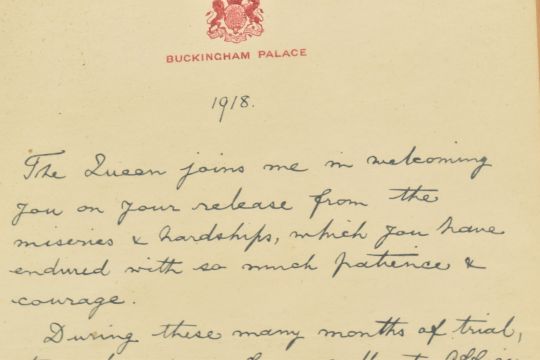 BUCKINGHAM PALACE
1918.
The Queen joins me in welcoming
you on your release from the
miseries & hardships, which you have
endured with so much patience &
courage.
During these many months of trial,